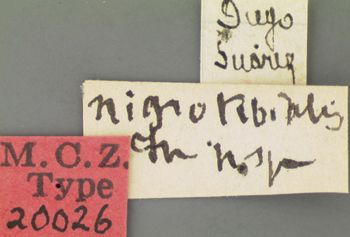 Diego
Suárez
nigrotibialis
n. sp
M.C.Z.
Type
20026